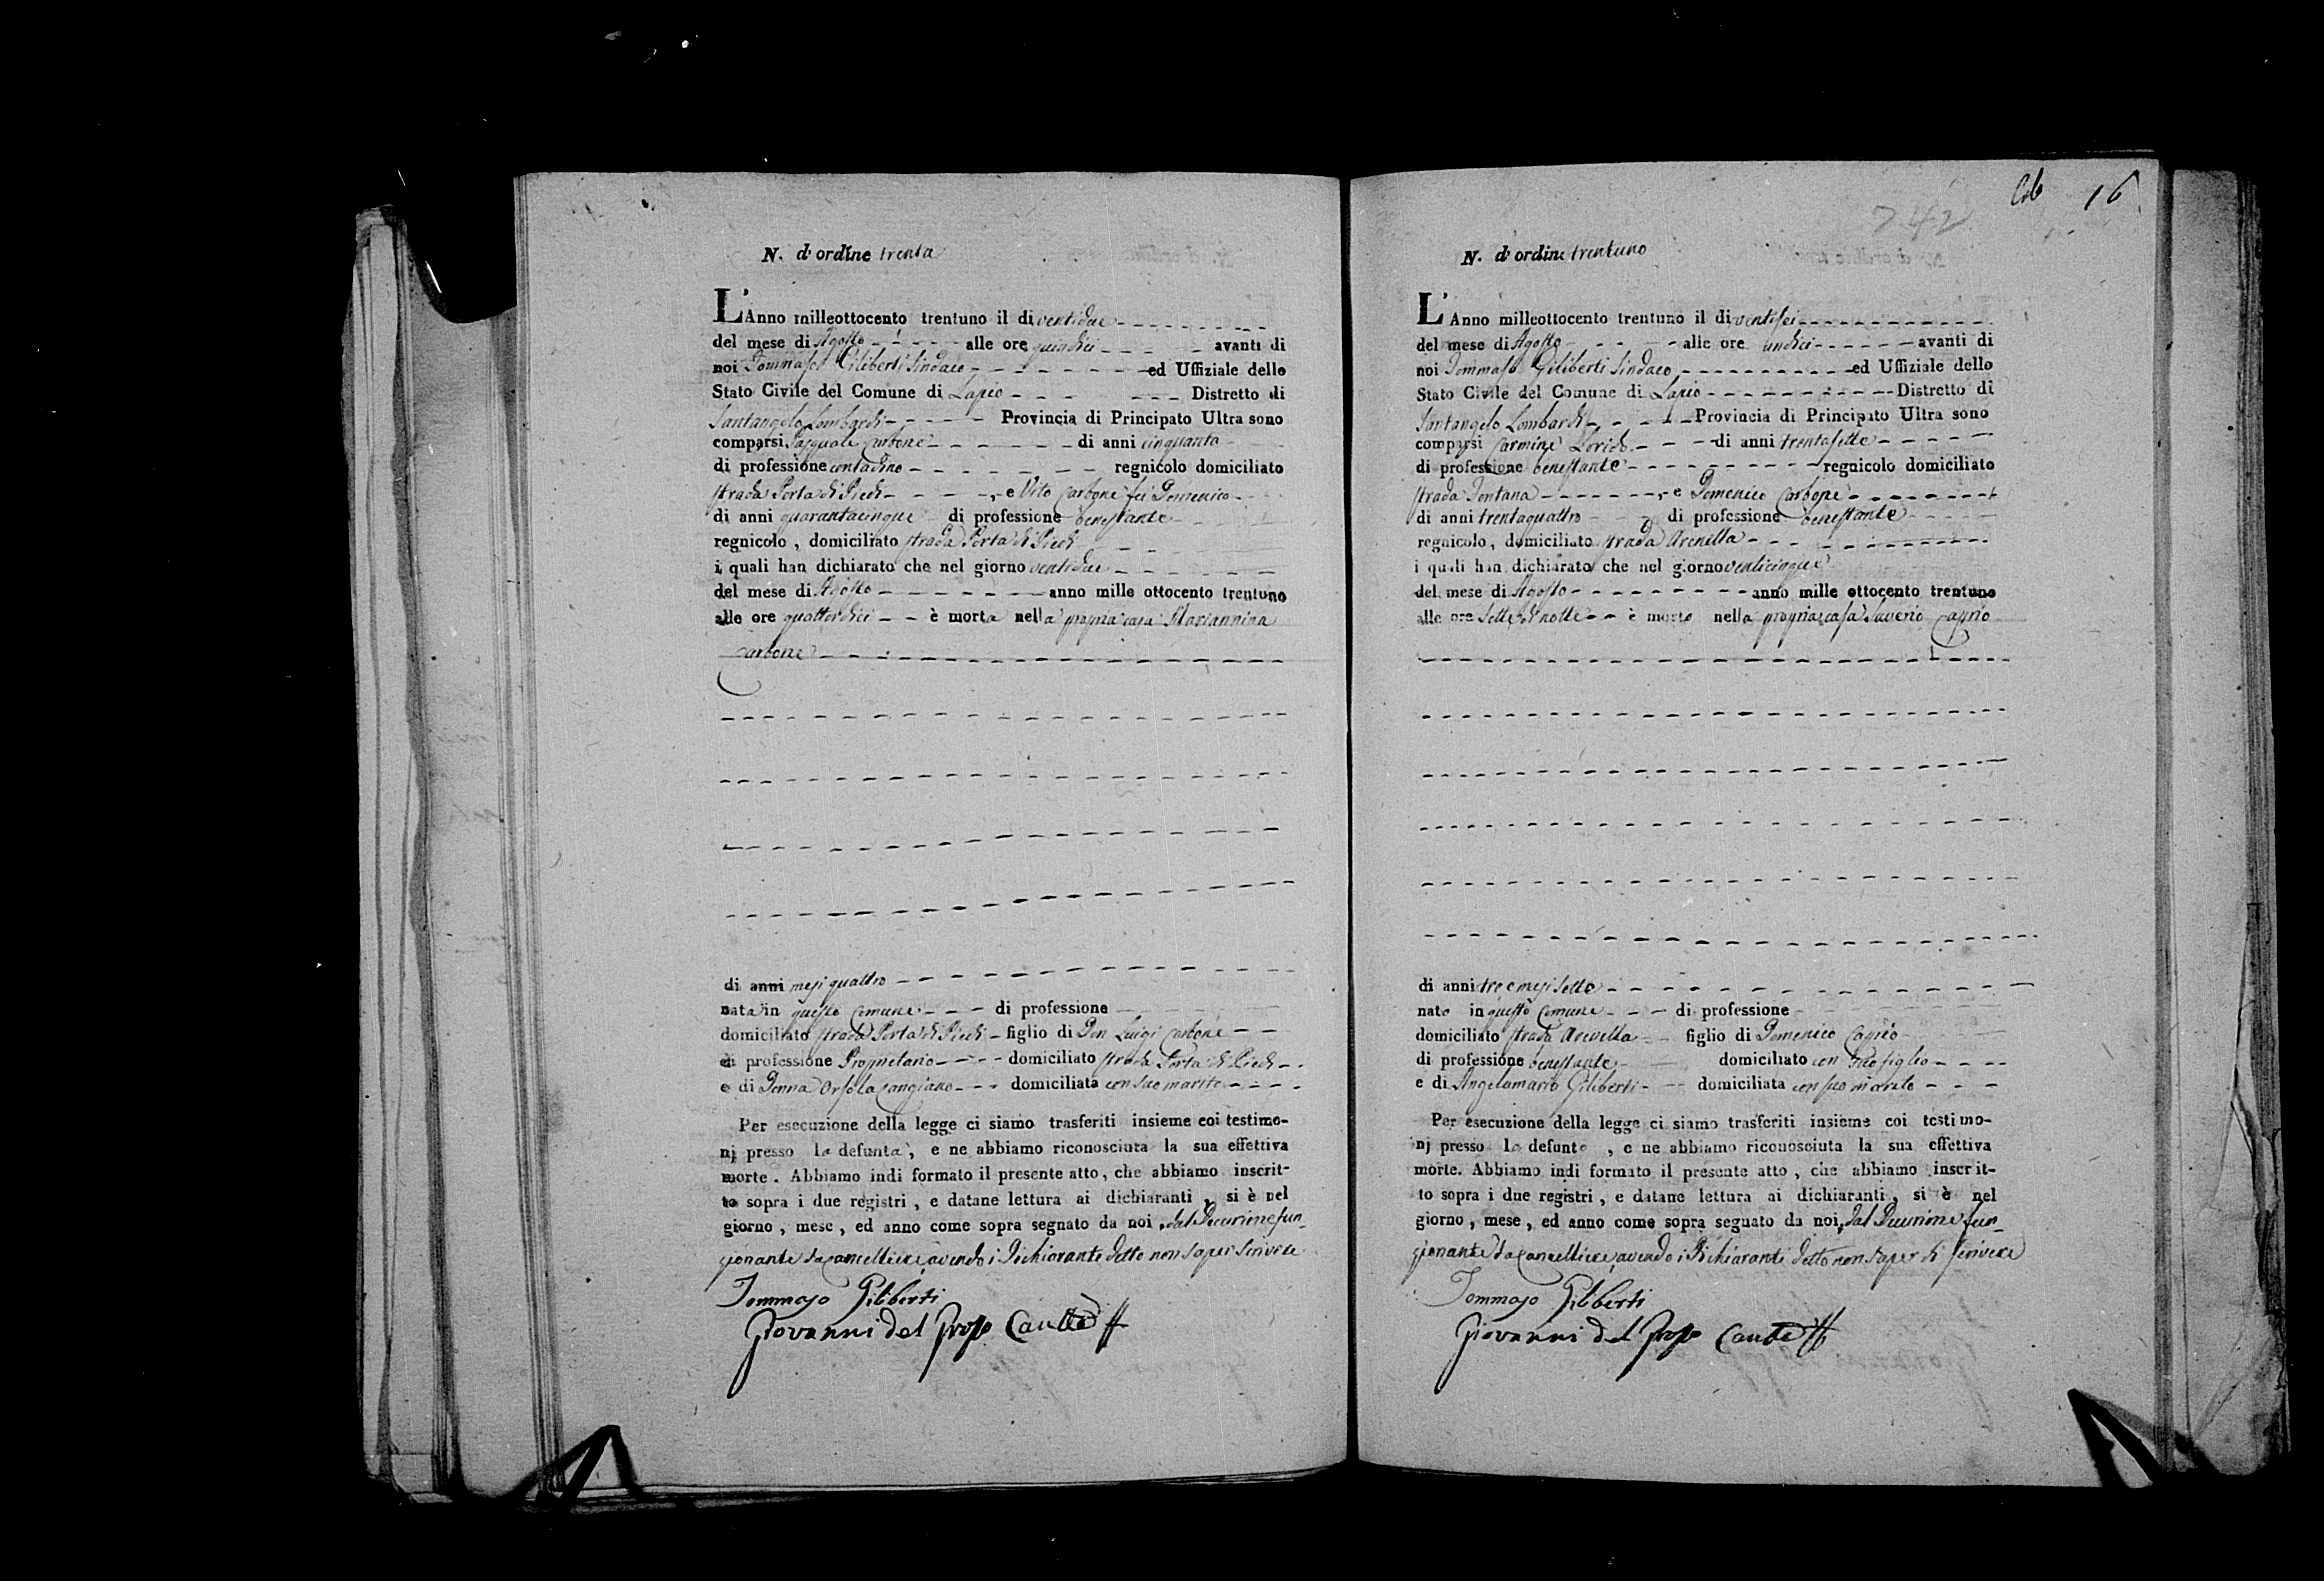 N. d'ordine trenta
L'Anno milleottocento trentuno il di ventidue
del mese di Agosto alle ore quindici avanti di
noi Tommaso Giliberti Sindaco ed Uffiziale dello
Stato Civile del Comune di Lapio Distretto di
Santangelo Lombardi Provincia di Principato Ultra sono
comparsi Pasquale Carbone di anni cinquanta
di professione contadino regnicolo domiciliato
strada Porta di Piedi e Vito Carbone fu Domenico
di anni quarantacinque di professione benestante
regnicolo, domiciliato strada Porta di Piedi
i quali han dichiarato che nel giorno ventidue
del mese di Agosto anno mille ottocento trentuno
alle ore quattordici è morta nella propria casa Mariannina
Carbone
di anni mesi quattro
nata in questo Comune di professione
domiciliato strada Porta di Piedi figlio di Don Luigi Carbone
di professione Proprietario domiciliato strada Porta di Piedi
e di Donna Orsola Cangiano domiciliata con suo marito
Per esecuzione della legge ci siamo trasferiti insieme coi testimo-
nj presso la defunta, e ne abbiamo riconosciuta la sua effettiva
morte. Abbiamo indi formato il presente atto, che abbiamo inscrit-
to sopra i due registri, e datane lettura ai dichiaranti, si è nel
giorno, mese, ed anno come sopra segnato da noi, dal Decurione fun-
zionante da Cancelliere, avendo i Dichiarante detto non saper scrivere
Tommaso Giliberti
Giovanni del Grosso
Cab 16
742
N. d'ordine trentuno
L'Anno milleottocento trentuno il di ventisei
del mese di Agosto alle ore undici avanti di
noi Tommaso Giliberti Sindaco ed Uffiziale dello
Stato Civile del Comune di Lapio Distretto di
Santangelo Lombardi Provincia di Principato Ultra sono
comparsi Carmine di anni trentasette
di professione benestante regnicolo domiciliato
strada Fontana e Domenico Carbone
di anni trentaquattro di professione benestante
regnicolo, domiciliato strada Arenella
i quali han dichiarato che nel giorno venticinque
del mese di Agosto anno mille ottocento trentuno
alle ore sette di notte è morto nella propria casa Saverio Caprio
di anni tre e mesi sette
nato in questo Comune di professione
domiciliato strada Arenella figlio di Domenico Caprio
di professione benestante domiciliato con suo figlio
e di Angelamaria Giliberti domiciliata con suo marito
Per esecuzione della legge ci siamo trasferiti insieme coi testimo-
nj presso lo defunto, e ne abbiamo riconosciuta la sua effettiva
morte. Abbiamo indi formato il presente atto, che abbiamo inscrit-
to sopra i due registri, e datane lettura ai dichiaranti, si è nel
giorno, mese, ed anno come sopra segnato da noi, dal Decurione fun-
zionante da Cancelliere, avendo i Dichiaranti detto non saper di scrivere
Tommaso Giliberti
Giovanni del Grosso